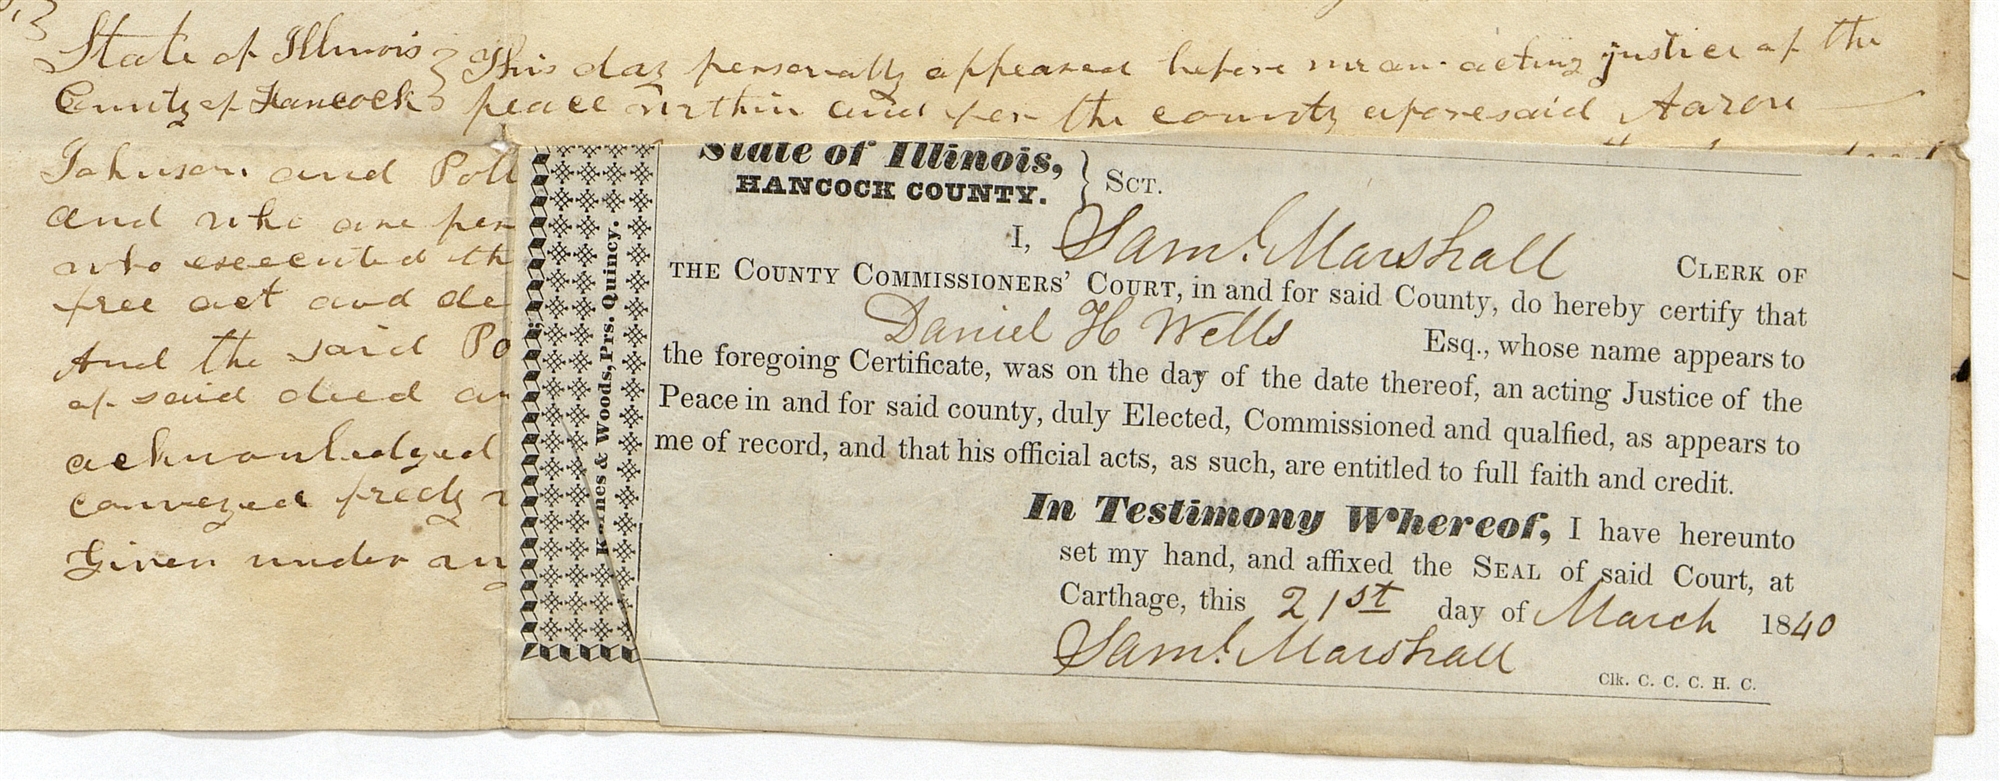 State of Illinois
County of Hancock
This day personally appeared before me an acting justice of the
peace within and for the county aforesaid Aaron
Johnson and Poll
and who are per
who executed th
free act and de
And the said Po
of said deed an
acknowledged
conveyed freely
Given under
State of Illinois,
HANCOCK COUNTY.
SCT.
I, Saml. Marshall CLERK OF
THE COUNTY COMMISSIONERS' COURT, in and for said County, do hereby certify that
Daniel H Wells Esq., whose name appears to
the foregoing Certificate, was on the day of the date thereof, an acting Justice of the
Peace in and for said county, duly Elected, Commissioned and qualfied, as appears to
me of record, and that his official acts, as such, are entitled to full faith and credit.
In Testimony Whereof, I have hereunto
set my hand, and affixed the SEAL of said Court, at
Carthage, this 21st day of March 1840
Saml. Marshall
Clk. C. C. C. H. C.
& Woods, Prs. Quincy.